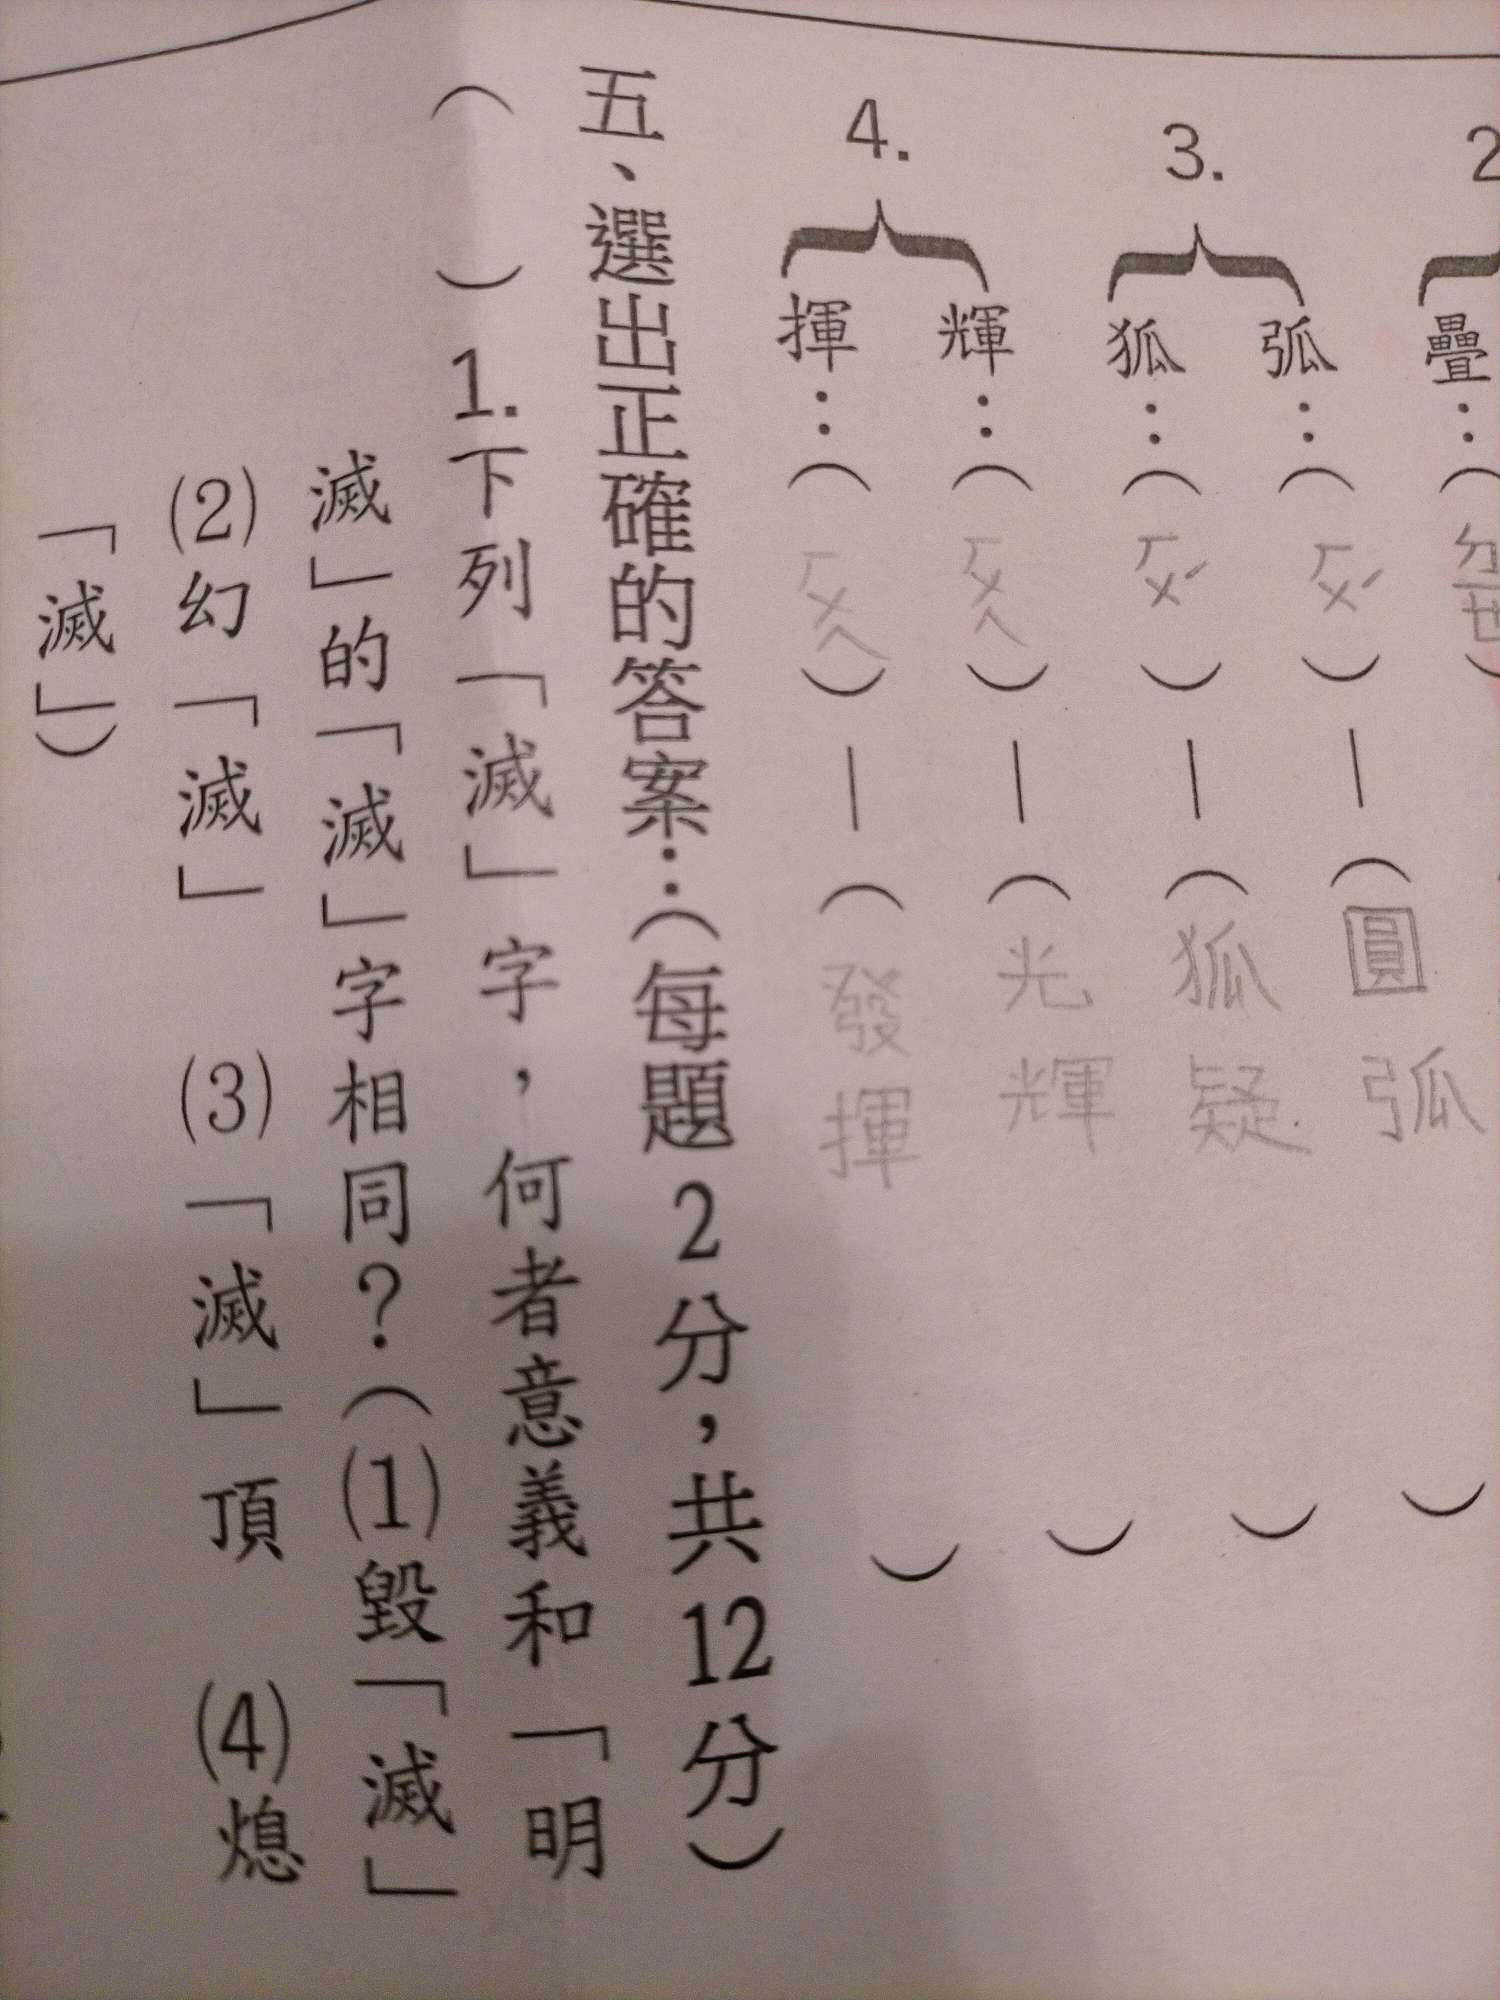 2
疊：（ㄉㄧㄝ
3.
弧：（ㄏㄨˊ）—（圓弧）
狐：（ㄏㄨˊ）—（狐疑）
4.
輝：（ㄏㄨㄟ）—（光輝）
揮：（ㄏㄨㄟ）—（發揮）
五、選出正確的答案：（每題2分，共12分）
（ ）1.下列「滅」字，何者意義和「明
滅」的「滅」字相同？（⑴毀「滅」
⑵幻「滅」 ⑶「滅」頂 ⑷熄
「滅」）